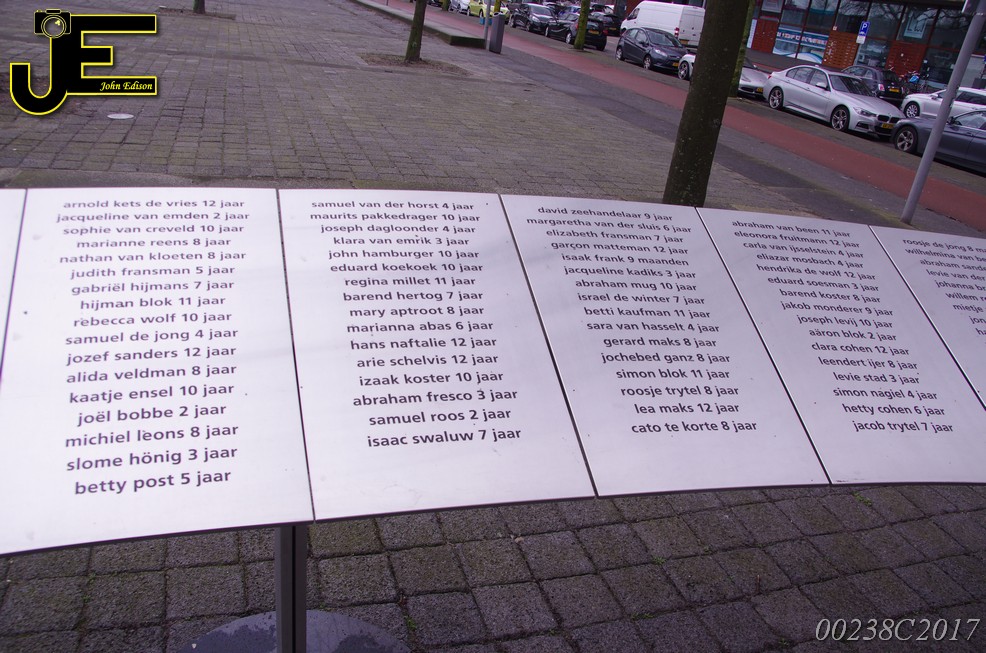 JE
John Edison
arnold kets de vries 12 jaar
jacqueline van emden 2 jaar
sophie van creveld 10 jaar
marianne reens 8 jaar
nathan van kloeten 8 jaar
judith fransman 5 jaar
gabriël hijmans 7 jaar
hijman blok 11 jaar
rebecca wolf 10 jaar
samuel de jong 4 jaar
jozef sanders 12 jaar
alida veldman 8 jaar
kaatje ensel 10 jaar
joël bobbe 2 jaar
michiel leons 8 jaar
slome hönig 3 jaar
betty post 5 jaar
samuel van der horst 4 jaar
maurits pakkedrager 10 jaar
joseph dagloonder 4 jaar
klara van emrik 3 jaar
john hamburger 10 jaar
eduard koekoek 10 jaar
regina millet 11 jaar
barend hertog 7 jaar
mary aptroot 8 jaar
marianna abas 6 jaar
hans naftalie 12 jaar
arie schelvis 12 jaar
izaak koster 10 jaar
abraham fresco 3 jaar
samuel roos 2 jaar
isaac swaluw 7 jaar
david zeehandelaar 9 jaar
margaretha van der sluis 6 jaar
elizabeth fransman 7 jaar
garçon matteman 12 jaar
isaak frank 9 maanden
jacqueline kadiks 3 jaar
abraham mug 10 jaar
israel de winter 7 jaar
betti kaufman 11 jaar
sara van hasselt 4 jaar
gerard maks 8 jaar
jochebed ganz 8 jaar
simon blok 11 jaar
roosje trytel 8 jaar
lea maks 12 jaar
cato te korte 8 jaar
abraham van been 11 jaar
eleonora fruitmann 12 jaar
carla van ijsselstein 4 jaar
eliazar mosbach 4 jaar
hendrika de wolf 12 jaar
eduard soesman 3 jaar
barend koster 8 jaar
jakob monderer 9 jaar
joseph levij 10 jaar
aäron blok 2 jaar
clara cohen 12 jaar
leendert ijer 8 jaar
levie stad 3 jaar
simon nagiel 4 jaar
hetty cohen 6 jaar
jacob trytel 7 jaar
roosje de jong 8
wilhelmina van
abraham sand
levie van de
johanna b
willem
mietje
00238C2017